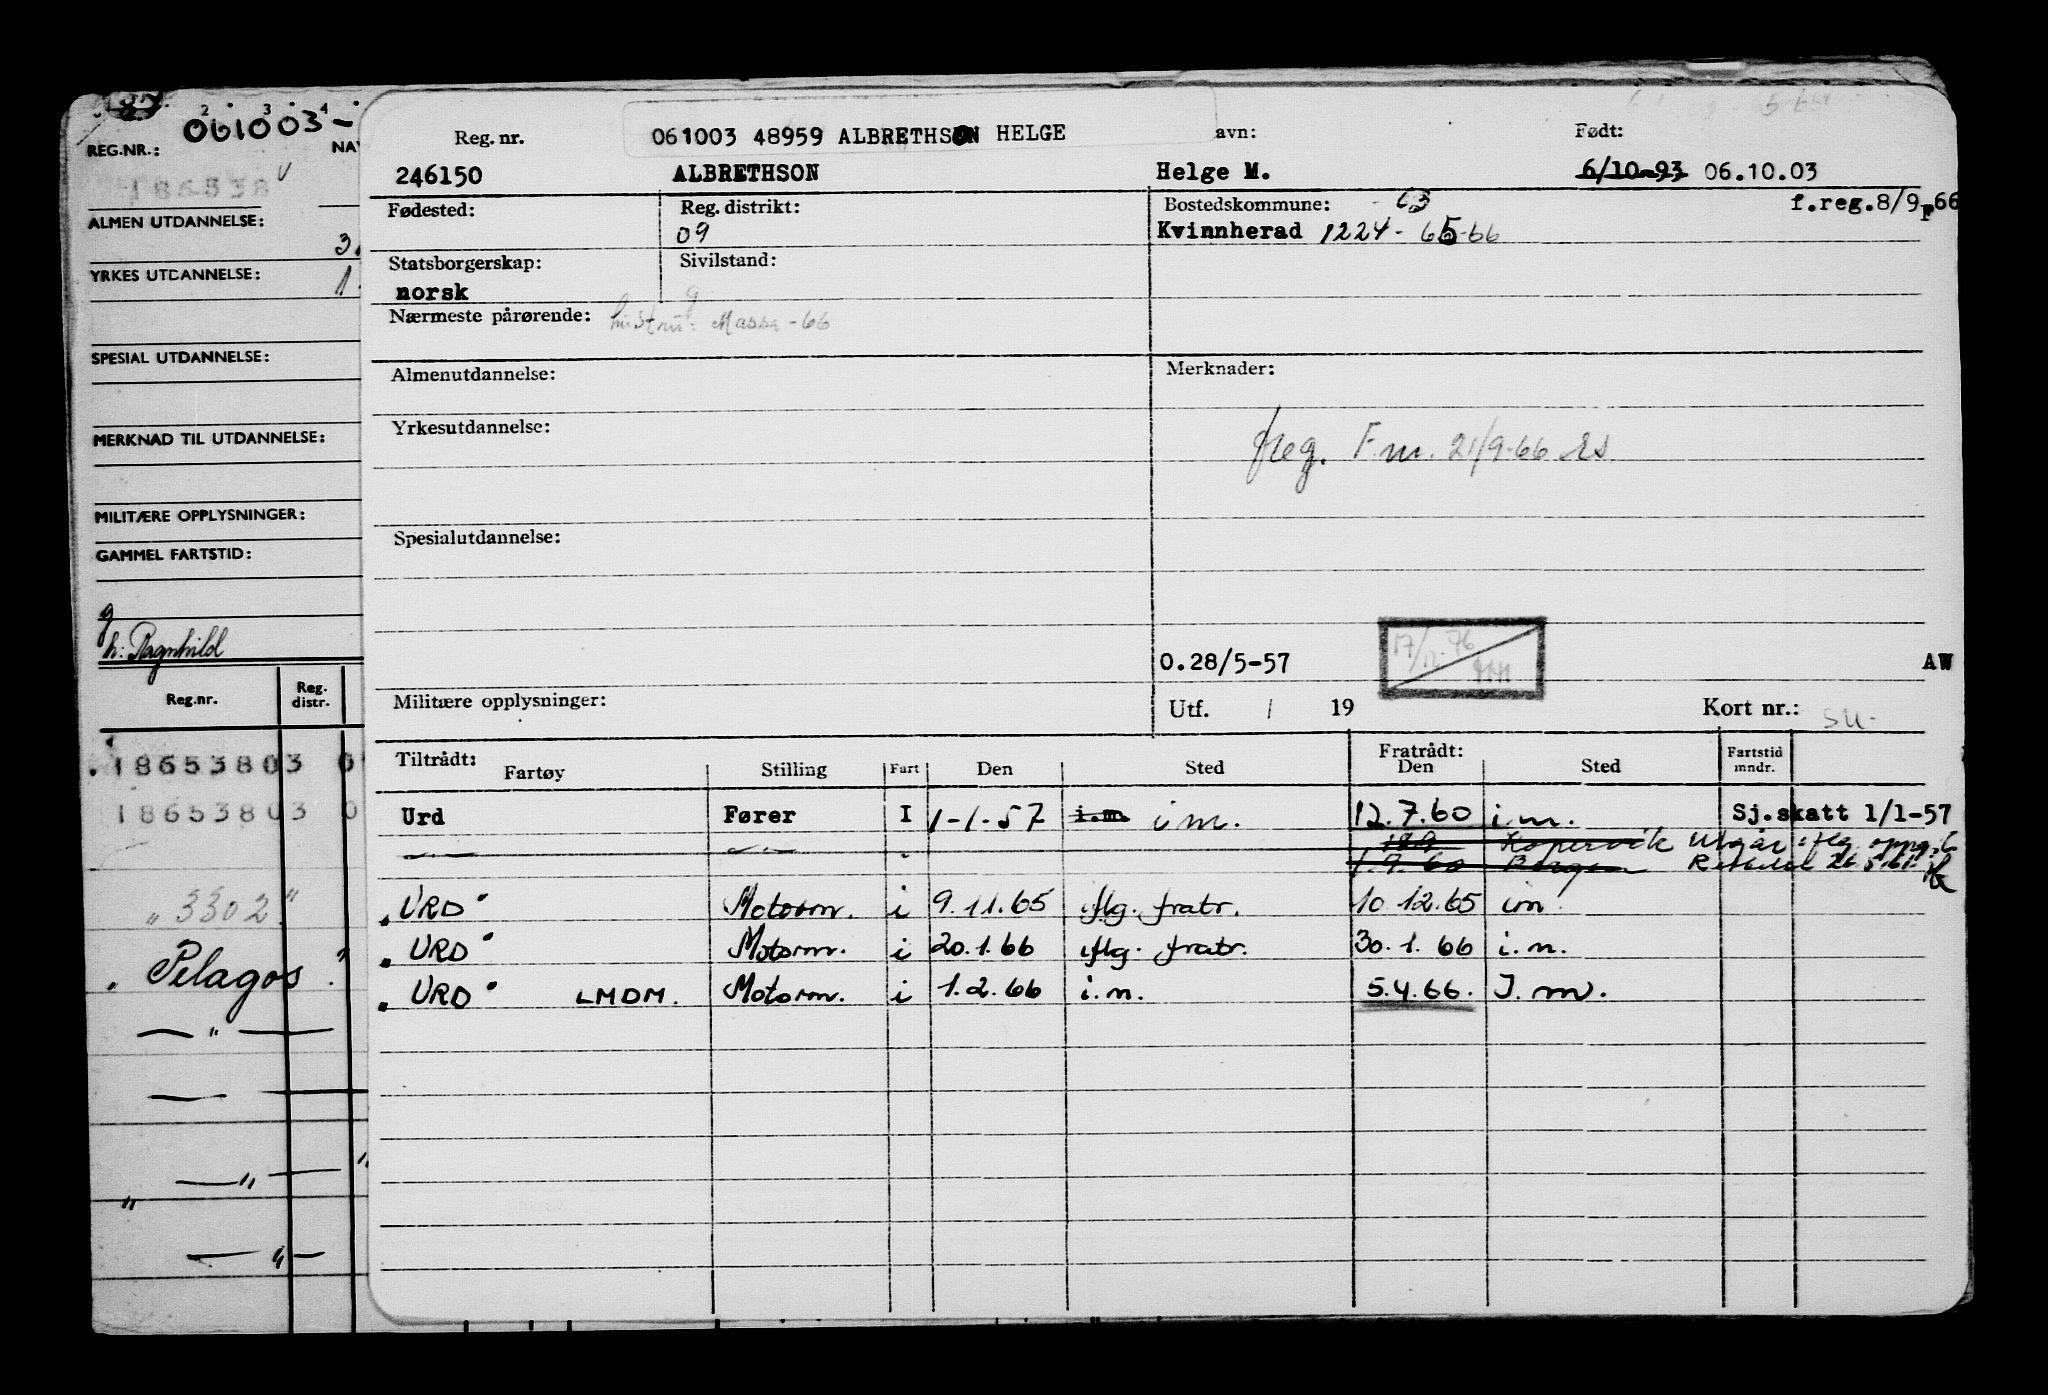 061003-
REG.NR.:
186538
ALMEN UTDANNELSE:
3.
YRKES UTDANNELSE:
1
SPESIAL UTDANNELSE:
MERKNAD TIL UTDANNELSE:
MILITÆRE OPPLYSNINGER:
GAMMEL FARTSTID:
g
h: Ragnhild
Reg.nr. Reg. distr.
18653803 0
18653803 0
"3302"
"Pelagos"
061003 48959 ALBRETHSON HELGE
Reg. nr. avn: Født:
246150 ALBRETHSON Helge M. 6/10-93 06.10.03
Fødested: Reg. distrikt: Bostedskommune: -63 f.reg.8/9-66
09 Kvinnherad 1224-65-66
Statsborgerskap: Sivilstand:
norsk g
Nærmeste pårørende: hustru: Massi -66
Almenutdannelse: Merknader:
Yrkesutdannelse:
freg. F.m. 21/9-66
Spesialutdannelse:
17/12.76
O.28/5-57 AW
Militære opplysninger: Utf. / 19 Kort nr.: su-
Tiltrådt: Fratrådt: Fartstid mndr.
Fartøy Stilling Fart Den Sted Den Sted
Urd Fører I 1-1-57 i.m. i m. 12.7.60 i.m. Sj.skatt 1/1-57
Kopervik Utgår iflg. oppg.
1.9.60 Bergen
"URD" Motorm. i 9.11.65 iflg. fratr. 10.12.65 i.n.
"URD" Motorm. i 20.1.66 iflg. fratr. 30.1.66 i.n.
"URD" LMDM. Motorm. i 1.2.66 i.n. 5.4.66. I.m.